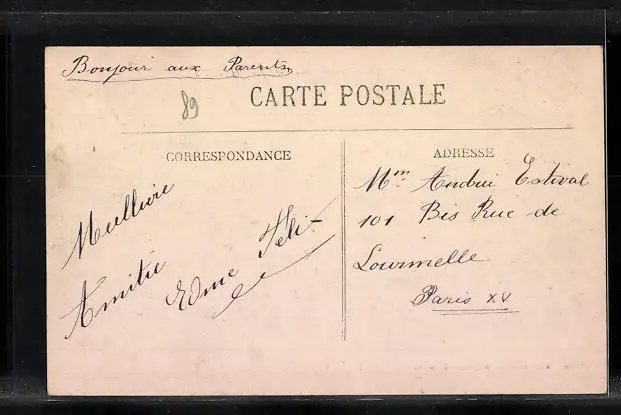 Bonjour aux Parents
89
CARTE POSTALE
CORRESPONDANCE
Meilleure
Amitié
Edme Félix
ADRESSE
Mm Andrée Estival
101 Bis Rue de
Lourmelle
Paris XV